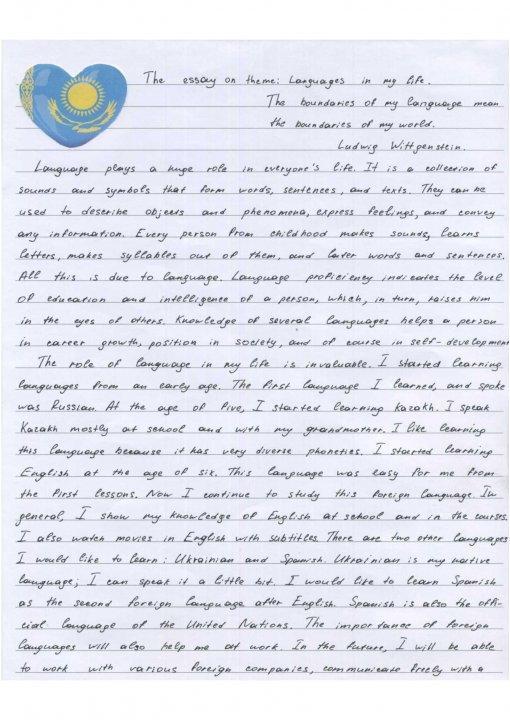 The essay on theme: Languages in my life.
The boundaries of my language mean
the boundaries of my world.
Ludwig Wittgenstein.
Language plays a huge role in everyone's life. It is a collection of
sounds and symbols that form words, sentences, and texts. They can be
used to describe objects and phenomena, express feelings, and convey
any information. Every person from childhood makes sounds, learns
letters, makes syllables out of them, and later words and sentences.
All this is due to language. Language proficiency indicates the level
of education and intelligence of a person, which, in turn, raises him
in the eyes of others. Knowledge of several languages helps a person
in career growth, position in society, and of course in self-development
The role of language in my life is invaluable. I started learning
languages from an early age. The first language I learned, and spoke
was Russian. At the age of five, I started learning Kazakh. I speak
Kazakh mostly at school and with my grandmother. I like learning
this language because it has very diverse phonetics. I started learning
English at the age of six. This language was easy for me from
the first lessons. Now I continue to study this foreign language. In
general, I show my knowledge of English at school and in the courses.
I also watch movies in English with subtitles. There are two other languages
I would like to learn: Ukrainian and Spanish. Ukrainian is my native
language; I can speak it a little bit. I would like to learn Spanish
as the second foreign language after English. Spanish is also the offi-
cial language of the United Nations. The importance of foreign
languages will also help me at work. In the future, I will be able
to work with various foreign companies, communicate freely with a